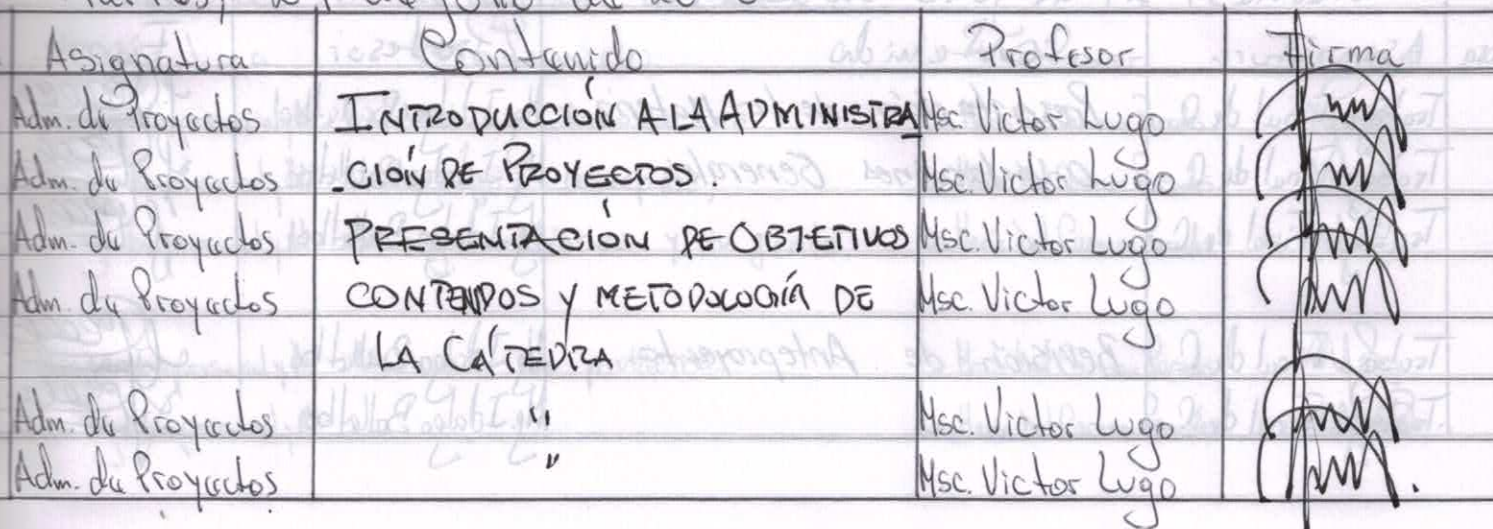 Asignatura Contenido Profesor Firma
Adm. de Proyectos INTRODUCCIÓN A LA ADMINISTRA Msc. Victor Lugo
Adm. de Proyectos -CIÓN DE PROYECTOS. Msc. Victor Lugo
Adm. de Proyectos PRESENTACIÓN DE OBJETIVOS Msc. Victor Lugo
Adm. de Proyectos CONTENIDOS Y METODOLOGÍA DE Msc. Victor Lugo
LA CÁTEDRA
Adm. de Proyectos " Msc. Victor Lugo
Adm. de Proyectos " Msc. Victor Lugo